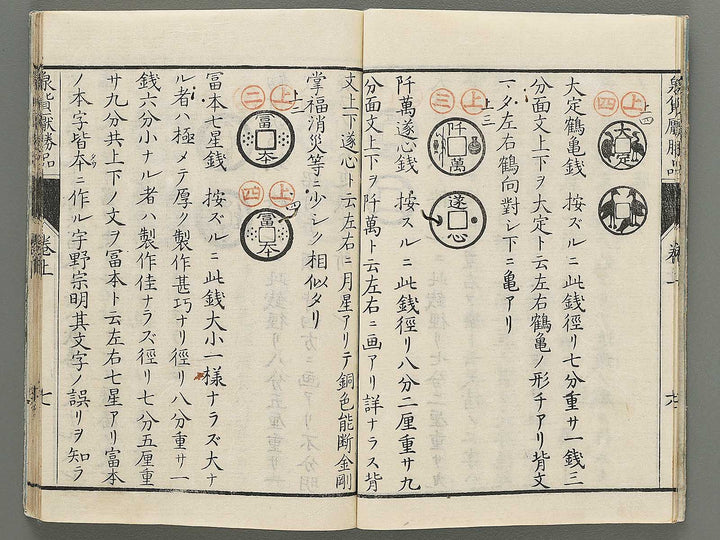 上四
上
四
大定
大定鶴亀銭 按ズルニ此銭徑リ七分重サ一銭三
分面文上下ヲ大定ト云左右鶴亀ノ形チアリ背文
左右鶴向對シ下ニ亀アリ
上三
上
三
阡萬
遂心
阡萬遂心銭 按スルニ此銭徑リ八分二厘重サ九
分面文上下ヲ阡萬ト云左右ニ画アリ詳ナラス背
文上下遂心ト云左右ニ月星アリテ銅色能断金剛
掌福消災等ニ少シク相似タリ
上二
上
二
冨本
上
四
冨本
冨本七星銭 按ズルニ此銭大小一様ナラズ大ナ
ル者ハ極メテ厚ク製作甚巧ナリ徑リ八分重サ一
銭六分小ナル者ハ製作佳ナラズ徑リ七分五厘重
サ九分共上下ノ文ヲ冨本ト云左右七星アリ冨本
ノ本字皆夲ニ作ル宇野宗明其文字ノ誤リヲ知ラ
泉貨厭勝品
巻上
七